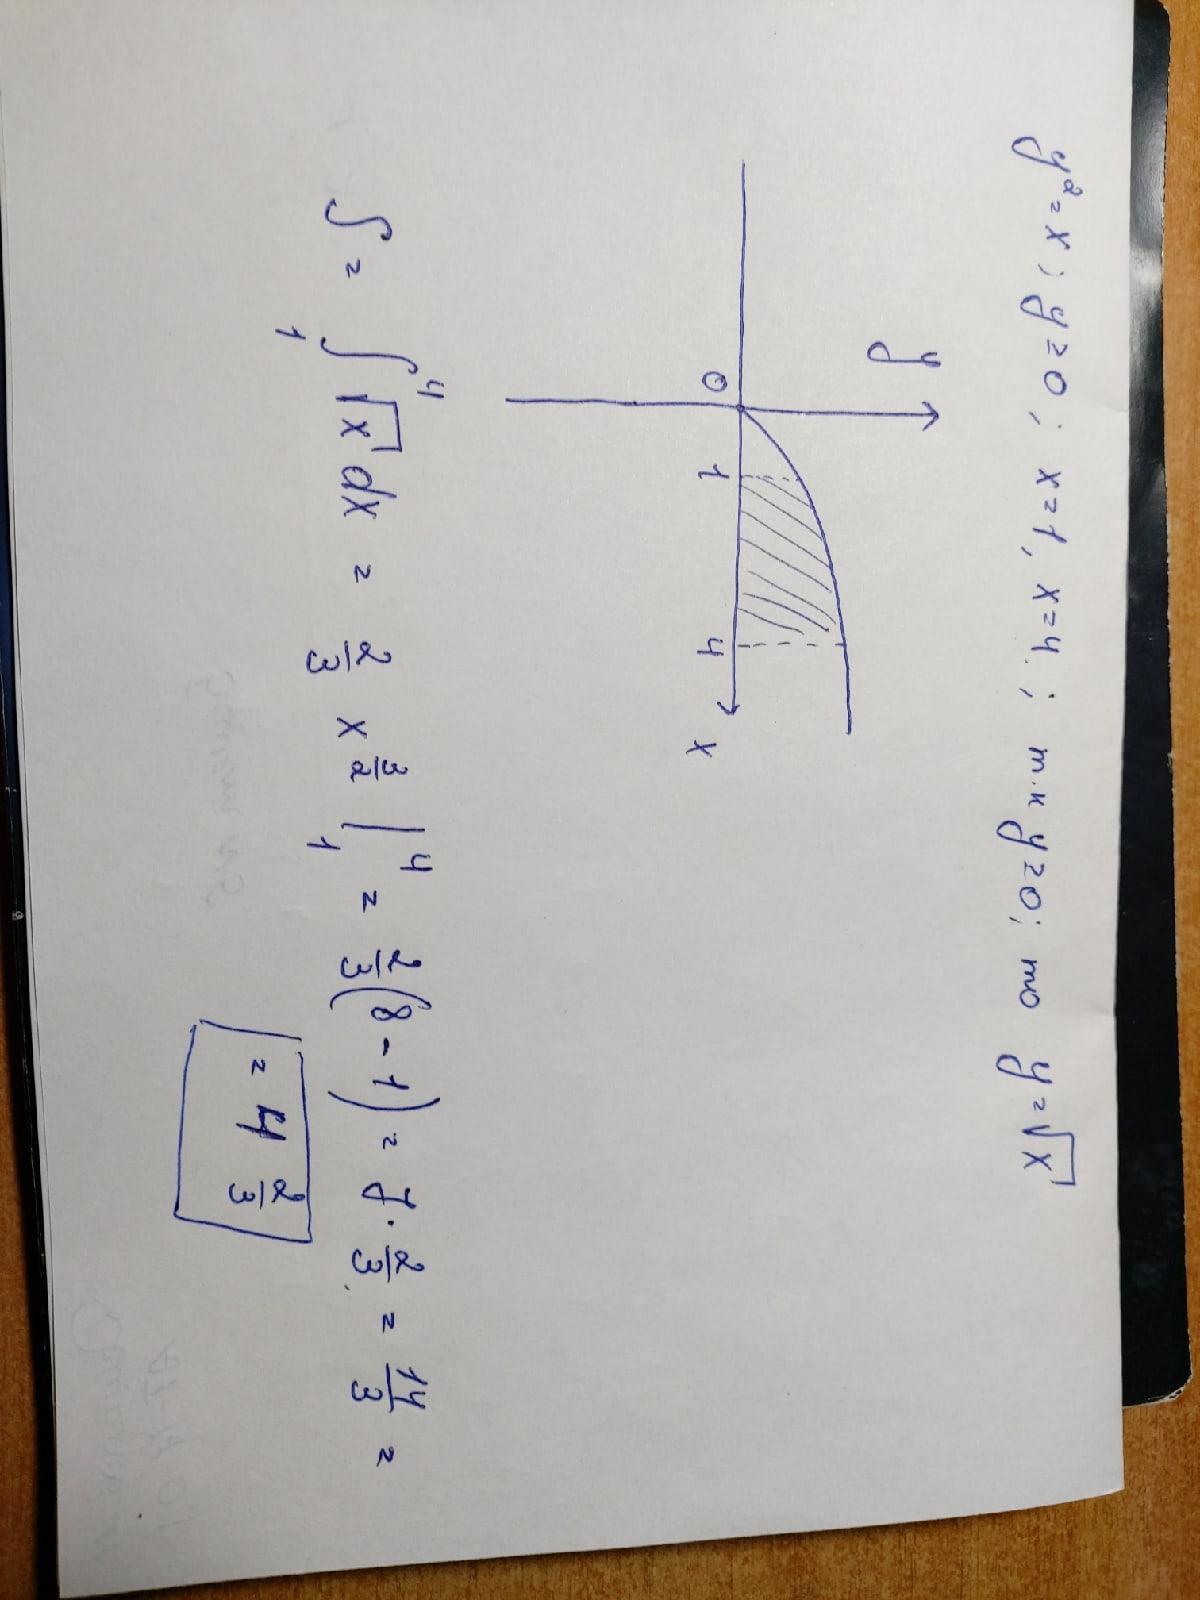 y² = x ; y ≥ 0 ; x = 1, x = 4 ; т.к y ≥ 0 ; то y = √x
y
0 1 4 x
S = ∫₁⁴ √x dx = 2/3 x^(3/2) |₁⁴ = 2/3 (8 - 1) = 7 · 2/3 = 14/3 =
= 4 2/3